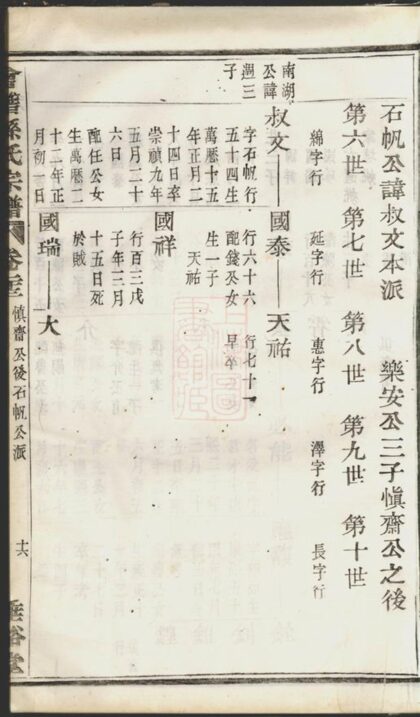 石帆公諱叔文本派　樂安公三子愼齋公之後
第六世　第七世　第八世　第九世　第十世
綿字行　延字行　惠字行　澤字行　長字行
南湖
公諱
週三
子
叔文　國泰　天祐
字石帆行　行六十六　行七十一
五十四生　配錢公女　早卒
萬曆十五　生一子
年正月二　天祐
十四日卒
崇禎九年　國祥
五月二十　行百三戊
六日　子年三月
配任公女　十五日死
生萬曆二　於賊
十三年正
月初一日　國瑞　大
會稽孫氏宗譜　卷之　愼齋公後石帆公派　十六　垂裕堂